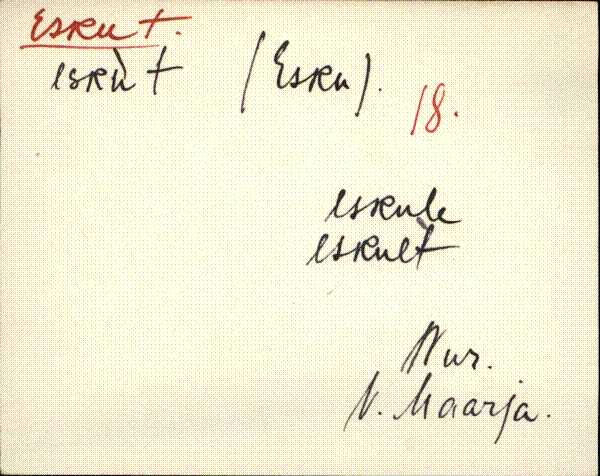 Esku t.
eskù t (Esku).
18.
eskule
eskult
Nur.
V. Maarja.